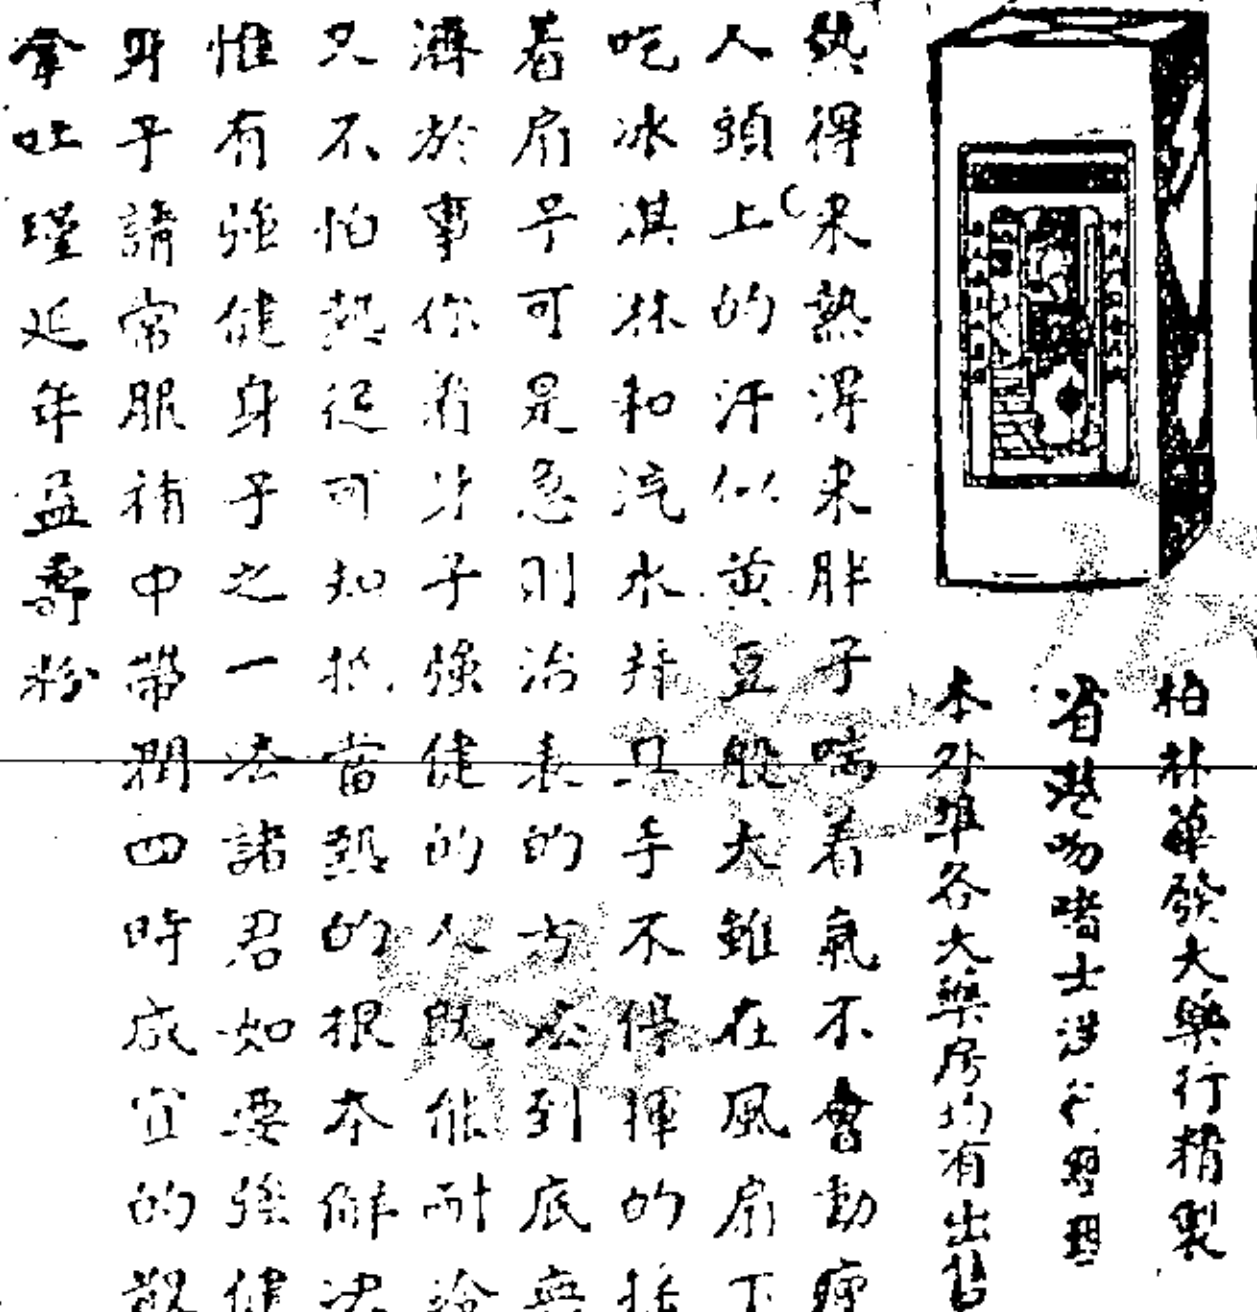 柏林華發大藥行精製
省港吻啫士洋行經理
本外埠各大藥房均有出售
熱得來熱得來胖子喘着氣不會動瘦
人頭上的汗似黃豆般大雖在風扇下
吃冰淇淋和汽水拜只手不停揮的括
着扇子可是急則治表的方法到底無
濟於事你看身子強健的人既能耐冷
又不怕熱從可知抵當熱的根本解決
惟有強健身子之一法諸君如要強健
身子請常服補中帶潤四時咸宜的散
拿吐瑾延年益壽粉